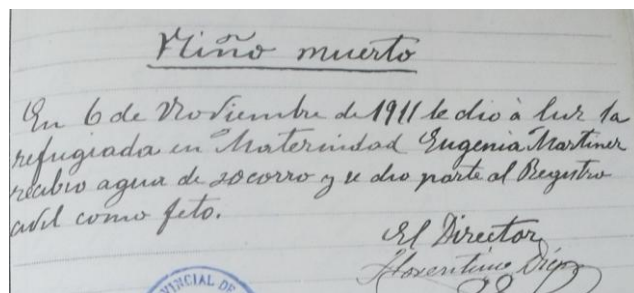 Niño muerto
En 6 de Noviembre de 1911 le dio à luz la
refugiada en Maternidad Eugenia Martinez
recibio agua de socorro y se dio parte al Registro
civil como feto.
El Director
Florentino Diez
VINCIAL DE